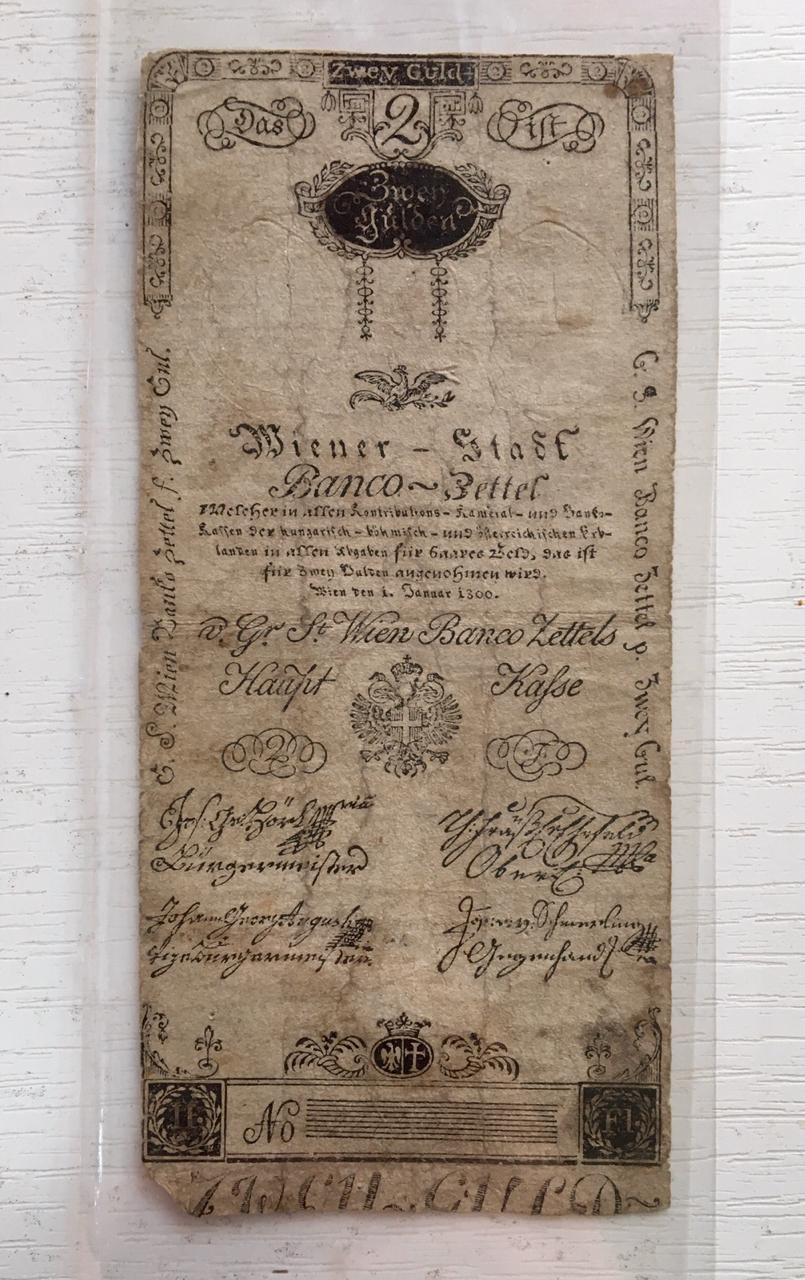 Zwey Guld:
Das 2 ist
Zwey
Gulden
Wiener - Stadt
Banco ~ Zettel
Welcher in allen Kontributions- Kameral- und Banko-
Kassen der hungarisch- böhmisch- und österreichischen Erb-
landen in allen Abgaben für baares Geld, das ist
für Zwey Gulden angenohmen wird.
Wien den 1. Januar 1800.
v. Gr. St. Wien Banco Zettels
Haupt Kasse
2 F
Bürgermeister
Johann Georg Augusti
Vizebürgermeister
v. Schmerling
Gegenhand
G. S. Wien Banco Zettel f. Zwey Gul.
G. S. Wien Banco Zettel p. Zwey Gul.
II Nо Fl